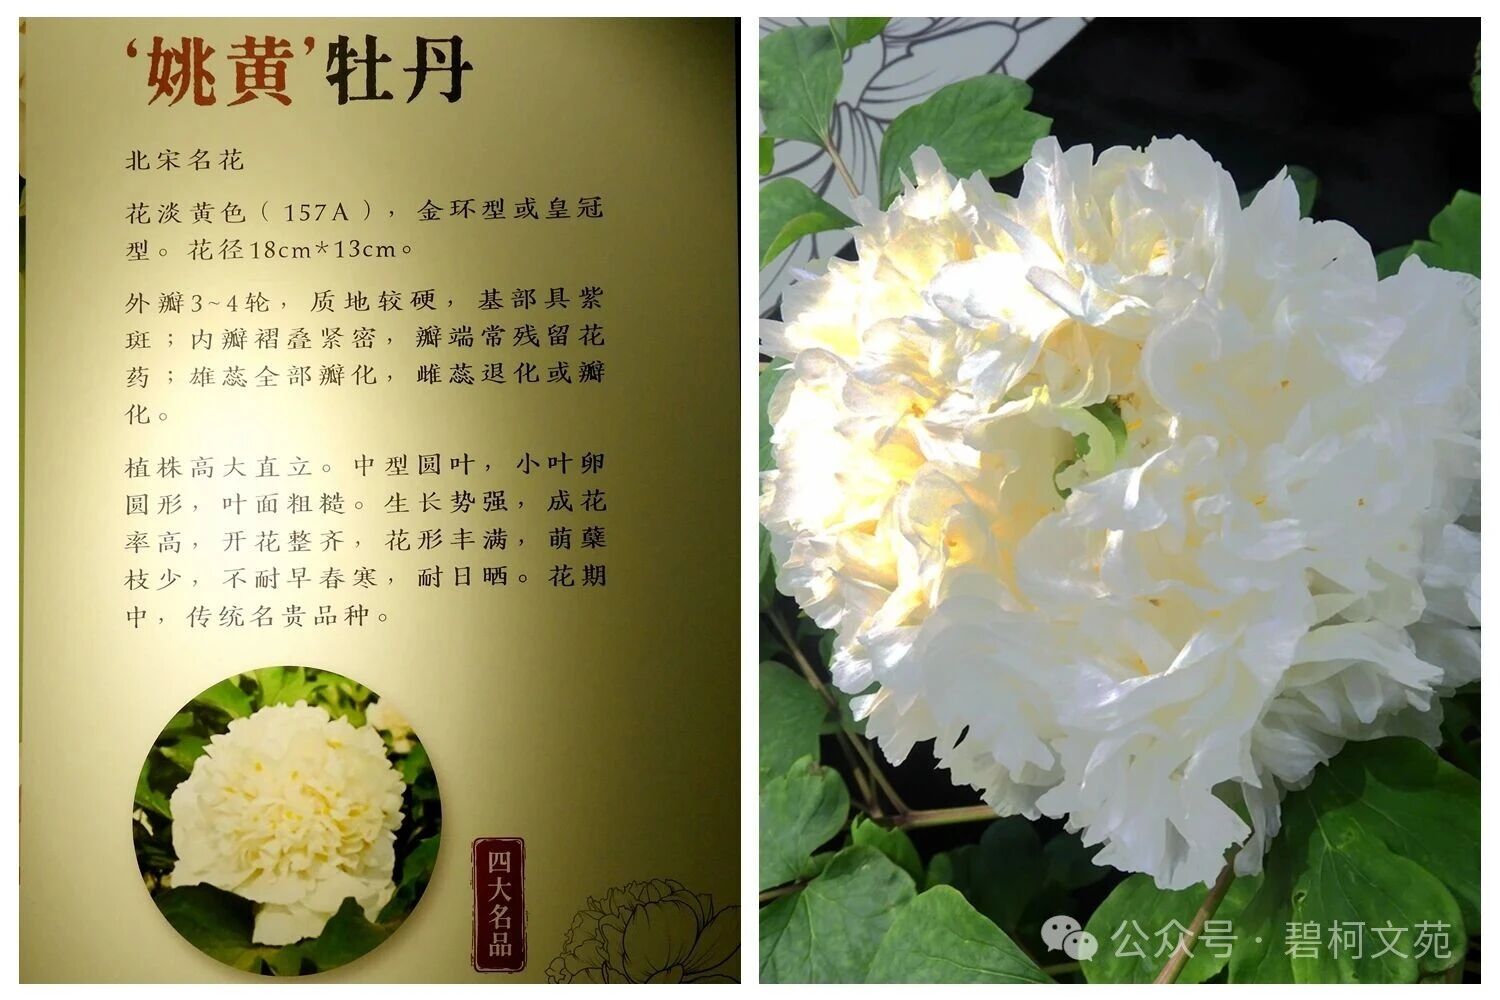 ‘姚黄’牡丹
北宋名花
花淡黄色（157A），金环型或皇冠
型。花径18cm*13cm。
外瓣3~4轮，质地较硬，基部具紫
斑；内瓣褶叠紧密，瓣端常残留花
药；雄蕊全部瓣化，雌蕊退化或瓣
化。
植株高大直立。中型圆叶，小叶卵
圆形，叶面粗糙。生长势强，成花
率高，开花整齐，花形丰满，萌蘖
枝少，不耐早春寒，耐日晒。花期
中，传统名贵品种。
四大名品
公众号·碧柯文苑